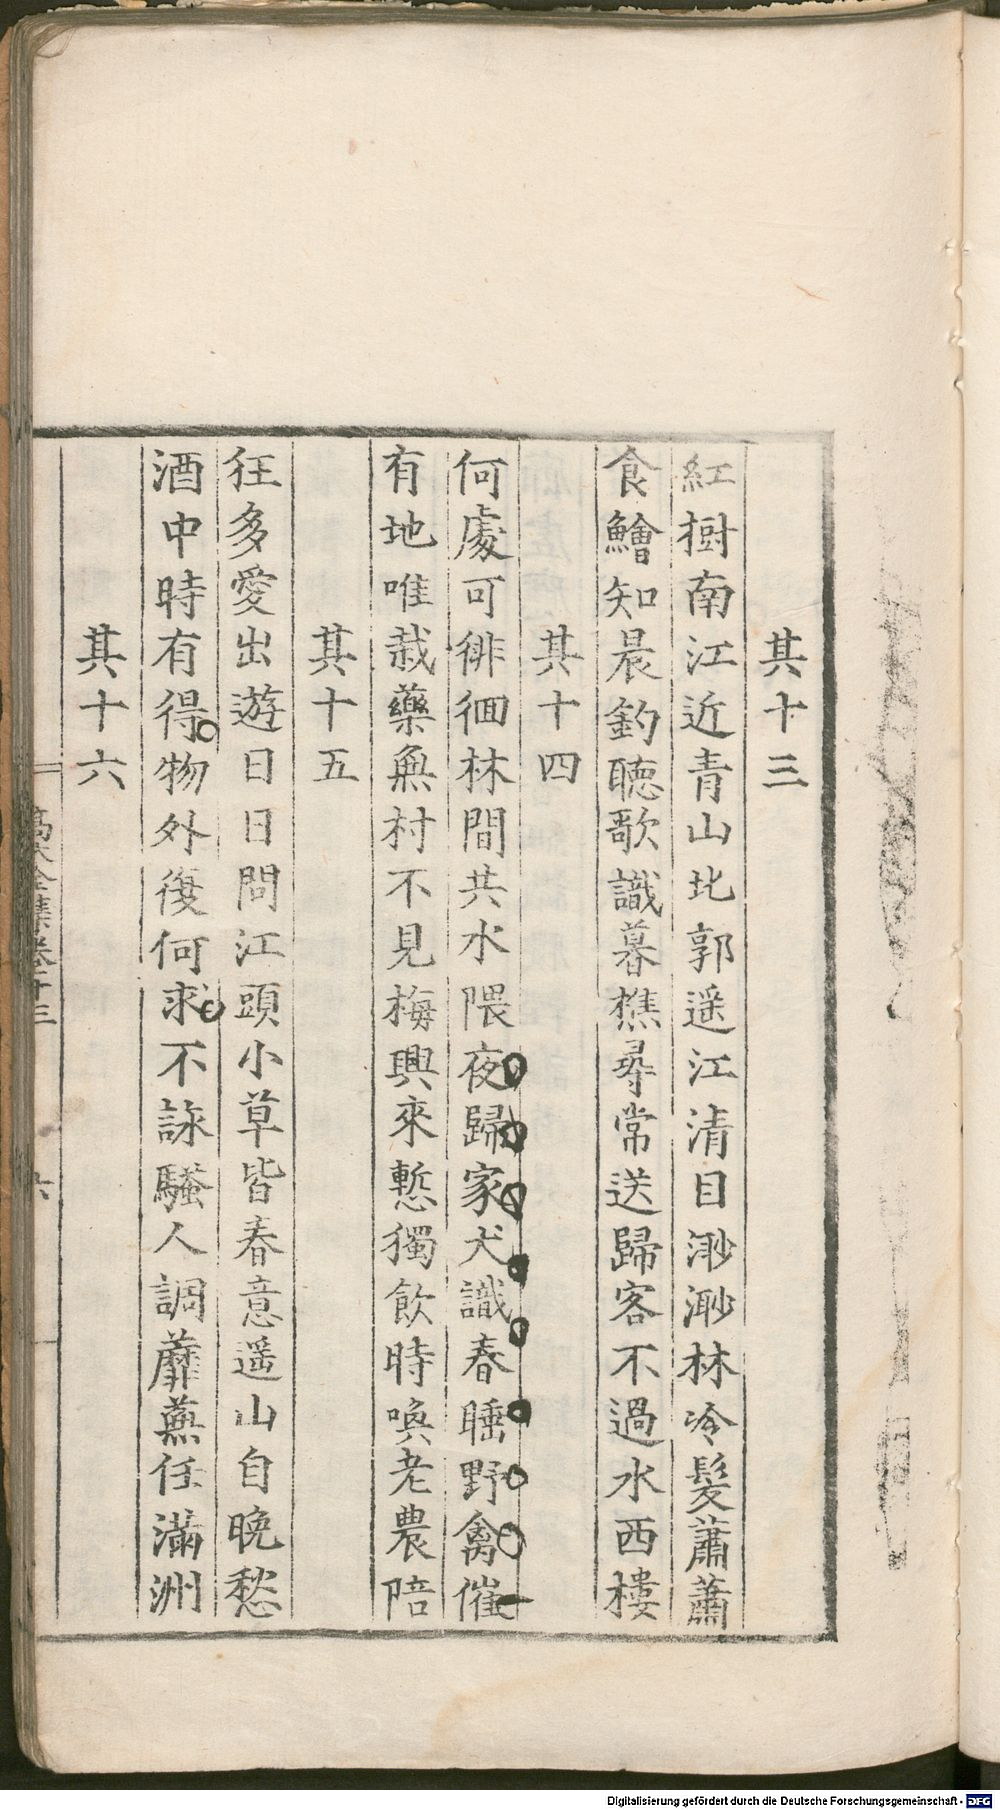 其十三
紅樹南江近青山北郭遥江清目渺渺林冷髮蕭蕭
食鱠知晨釣聴歌識暮樵尋常送歸客不過水西樓
其十四
何處可徘徊林間共水隈夜歸家犬識春睡野禽催
有地唯栽藥無村不見梅興來慙獨飲時喚老農陪
其十五
狂多愛出遊日日問江頭小草皆春意遥山自晚愁
酒中時有得物外復何求不詠騷人調蘼蕪任滿洲
其十六
高大全集卷十三
六
Digitalisierung gefördert durch die Deutsche Forschungsgemeinschaft - DFG